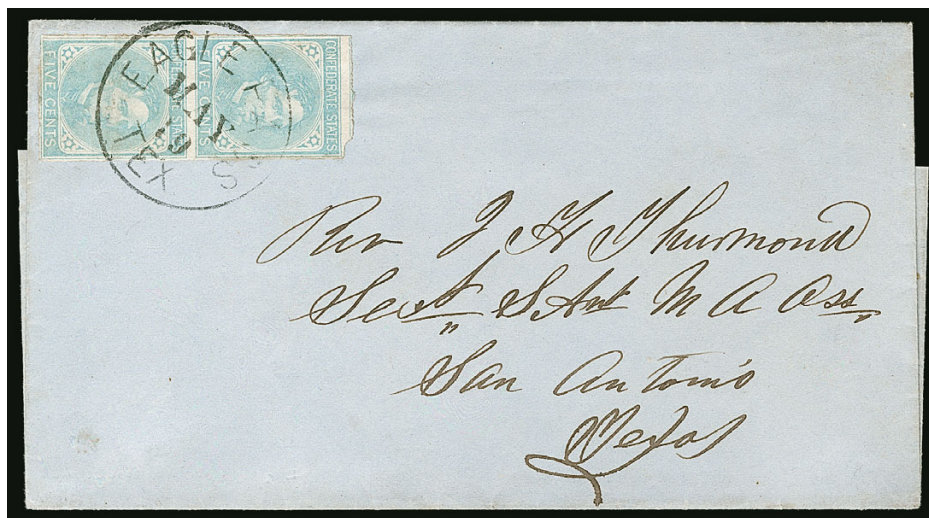 FIVE CENTS
CONFEDERATE STATES
FIVE CENTS
CONFEDERATE STATES
EAGLE PASS TEX.
MAY
19
Rev J H Thurmond
Sect S Ant M A Ass
San Antonio
Texas